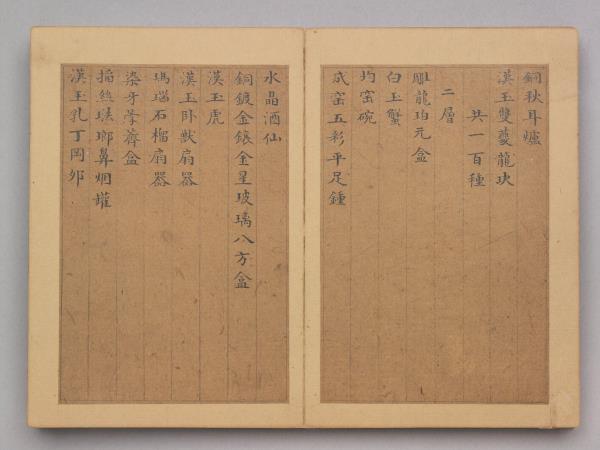 銅秋耳爐
漢玉雙夔龍玦
共一百種
二層
雕龍均元盒
白玉蟹
均窑碗
成窑五彩平足鍾
水晶酒仙
銅鍍金鑲金星玻璃八方盒
漢玉虎
漢玉卧獸扇器
瑪瑙石榴扇器
染牙荸薺盒
掐絲琺瑯鼻烟罐
漢玉乳丁岡卯